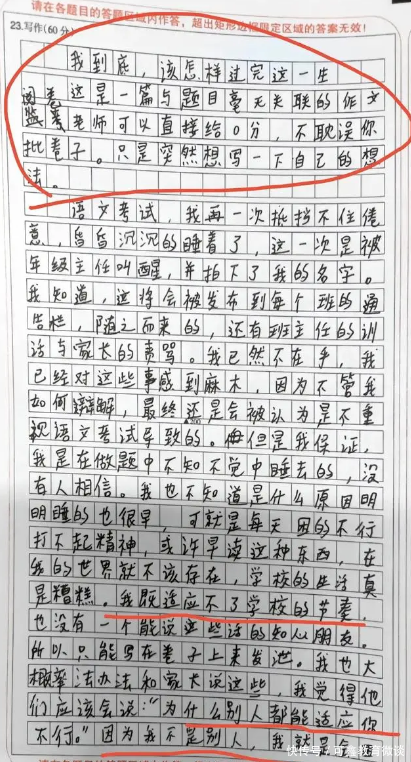 请在各题目的答题区域内作答，超出矩形边框限定区域的答案无效！
23.写作(60分)
我到底，该怎样过完这一生
这是一篇与题目毫无关联的作文
阅卷老师可以直接给0分，不耽误你
批卷子。只是突然想写一下自己的想
法。
语文考试，我再一次抵挡不住倦
意，昏昏沉沉的睡着了，这一次是被
年级主任叫醒，并拍下了我的名字。
我知道，这将会被发布到每个班的通
告栏，随之而来的，还有班主任的训
话与家长的责骂。我已然不在乎，我
已经对这些事感到麻木，因为不管我
如何辩解，最终还是会被认为是不重
视语文考试导致的。但是我保证，
我是在做题中不知不觉中睡去的，没
有人相信。我也不知道是什么原因明
明睡的也很早，可就是每天困的不行
打不起精神，或许早读这种东西，在
我的世界就不该存在，学校的生活真
是糟糕。我既适应不了学校的节奏，
也没有一个能说这些话的知心朋友。
所以只能写在卷子上来发泄。我也大
概率没办法和家长说这些，我觉得他
们应该会说："为什么别人都能适应你
不行。"因为我不是别人，我就是
快传号：
教育微谈